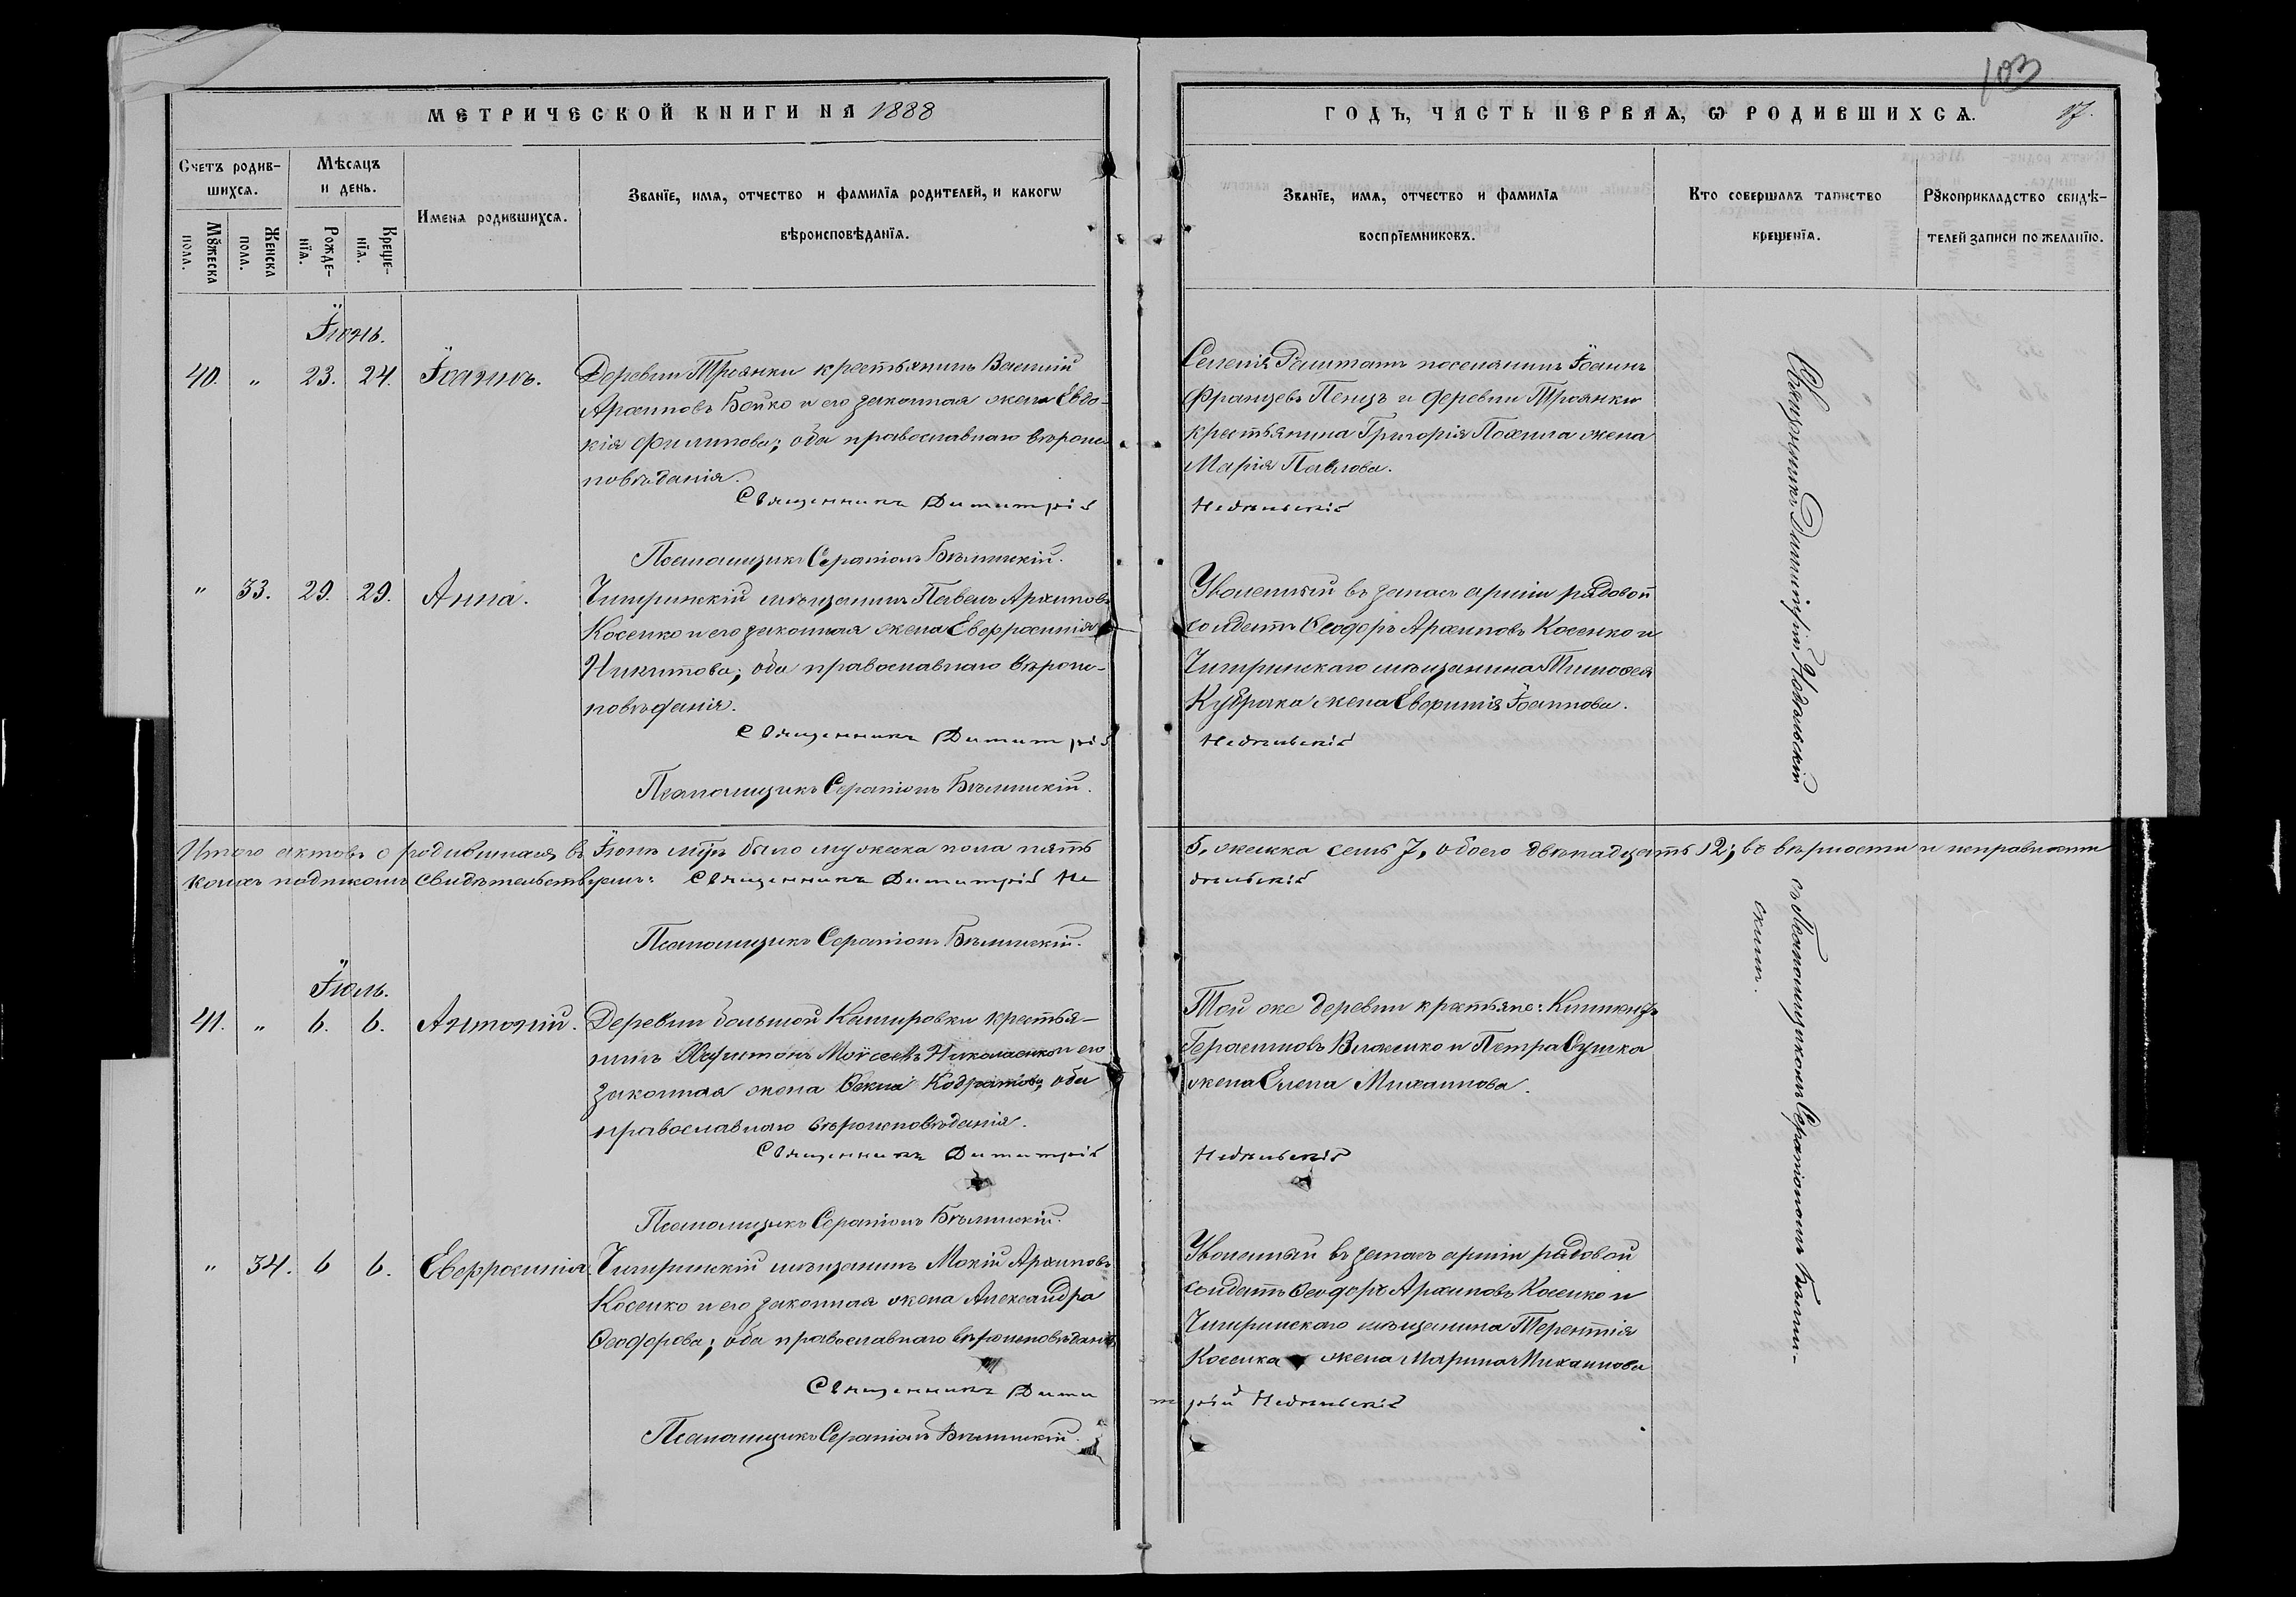 103
МЕТРИЧЕСКОЙ КНИГИ НА 1888
ГОДЪ, ЧАСТЬ ПЕРВАѦ, Ѡ РОДИВШИХСѦ.
17.
Счетъ родив-
шихсѧ.
Мѣсѧцъ
и день.
Мꙋжеска
пола.
Женска
пола.
Рожде-
нїѧ.
Креще-
нїѧ.
Имена родившихсѧ.
Званїе, имѧ, отчество и фамилїѧ родителей, и какогѡ
вѣроисповѣданїѧ.
Званїе, имѧ, отчество и фамилїѧ
воспрїемниковъ.
Кто совершалъ таинство
крещенїѧ.
Рꙋкоприкладство свидѣ-
телей записи по желанїю.
Їюнь.
40. " 23. 24. Їоаннъ.
Деревни Троянки крестьянинъ Василій
Архиповъ Бойко и его законная жена Евдо-
кія Филипова; оба православнаго вѣроис-
повѣданія.
Священникъ Димитрій
Недѣльскій
Псаломщикъ Серапіонъ Бѣлинскій.
Селенія Раштатъ поселянинъ Їоаннъ
Францевъ Пенцъ и деревни Троянки
крестьянина Григорія Похила жена
Марія Павлова.
" 33. 29. 29. Анна.
Чигринскій мѣщанинъ Павелъ Архиповъ
Косенко и его законная жена Евфросинія
Никитова; оба православнаго вѣроис-
повѣданія.
Священникъ Димитрій
Недѣльскій
Псаломщикъ Серапіонъ Бѣлинскій.
Уволенный въ запасъ арміи рядовой
солдатъ Ѳеодоръ Архиповъ Косенко и
Чигринскаго мѣщанина Тимоѳея
Кубрака жена Евфимія Їоаннова.
Священникъ Димитрій Недѣльскій
Итого актовъ о родившихся въ Їюнѣ мцѣ было мужеска пола пять
5, женска семь 7, обоего двѣнадцать 12; въ вѣрности и исправности
коихъ подписомъ свидѣтельствуемъ: Священникъ Димитрій Не
дѣльскій
Псаломщикъ Серапіонъ Бѣлинскій.
Їюль.
41. " 6. 6. Антоній.
Деревни большой Кашировки крестья-
нинъ Харитонъ Моѵсеевъ Николаенко и его
законная жена Ѳекла Кодратова, оба
православнаго вѣроисповѣданія.
Священникъ Димитрій
Недѣльскій
Псаломщикъ Серапіонъ Бѣлинскій.
Той же деревни крестьяне:
Герасимовъ Власенко и Петра Сушка
жена Елена Михаилова.
съ Псаломщикомъ Серапіономъ Бѣлин-
скимъ.
" 34. 6 6. Евфросинія
Чигринскій мѣщанинъ Мокій Архиповъ
Косенко и его законная жена Александра
Ѳеодорова; оба православнаго вѣроисповѣданія
Священникъ Дими
трій Недѣльскій
Псаломщикъ Серапіонъ Бѣлинскій.
Уволенный въ запасъ арміи рядовой
солдатъ Ѳеодоръ Архиповъ Косенко и
Чигринскаго мѣщанина Терентія
Косенка жена Марина Михаилова